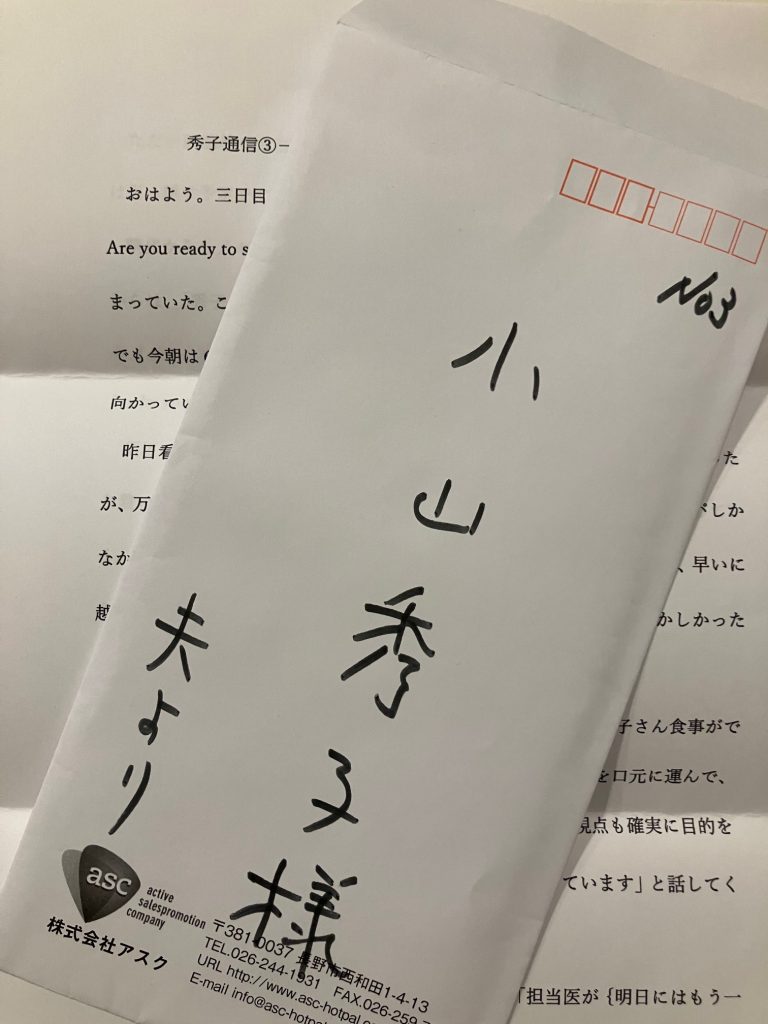 秀子通信③－
おはよう。三日目
Are you ready to s
まっていた。こ
でも今朝は
向かってい
昨日看
が、万
なか
越
た
がしか
、早いに
かしかった
子さん食事がで
を口元に運んで、
視点も確実に目的を
ています」と話してく
「担当医が{明日にはもう一
No3
小山秀子様
夫より
asc
active
salespromotion
company
株式会社アスク
〒381-0037 長野市西和田1-4-13
TEL.026-244-1931 FAX.026-259-7
URL http://www.asc-hotpal.co
E-mail info@asc-hotpal